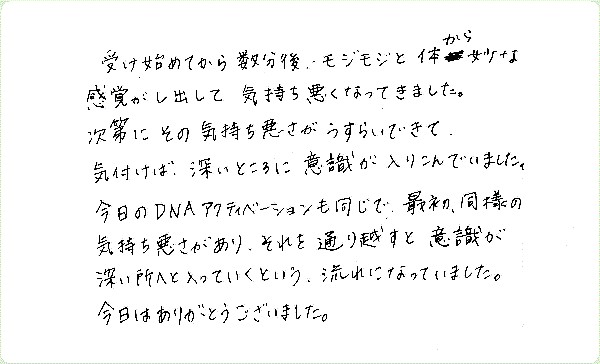 受け始めてから数分後、モジモジと体から妙な
感覚がし出して 気持ち悪くなってきました。
次第に その気持ち悪さが うすらいできて、
気付けば、深いところに 意識が 入りこんでいました。
今日のDNAアクティベーションも同じで、最初、同様の
気持ち悪さがあり、それを 通り越すと 意識が
深い所へと入っていくという、流れになっていました。
今日はありがとうございました。